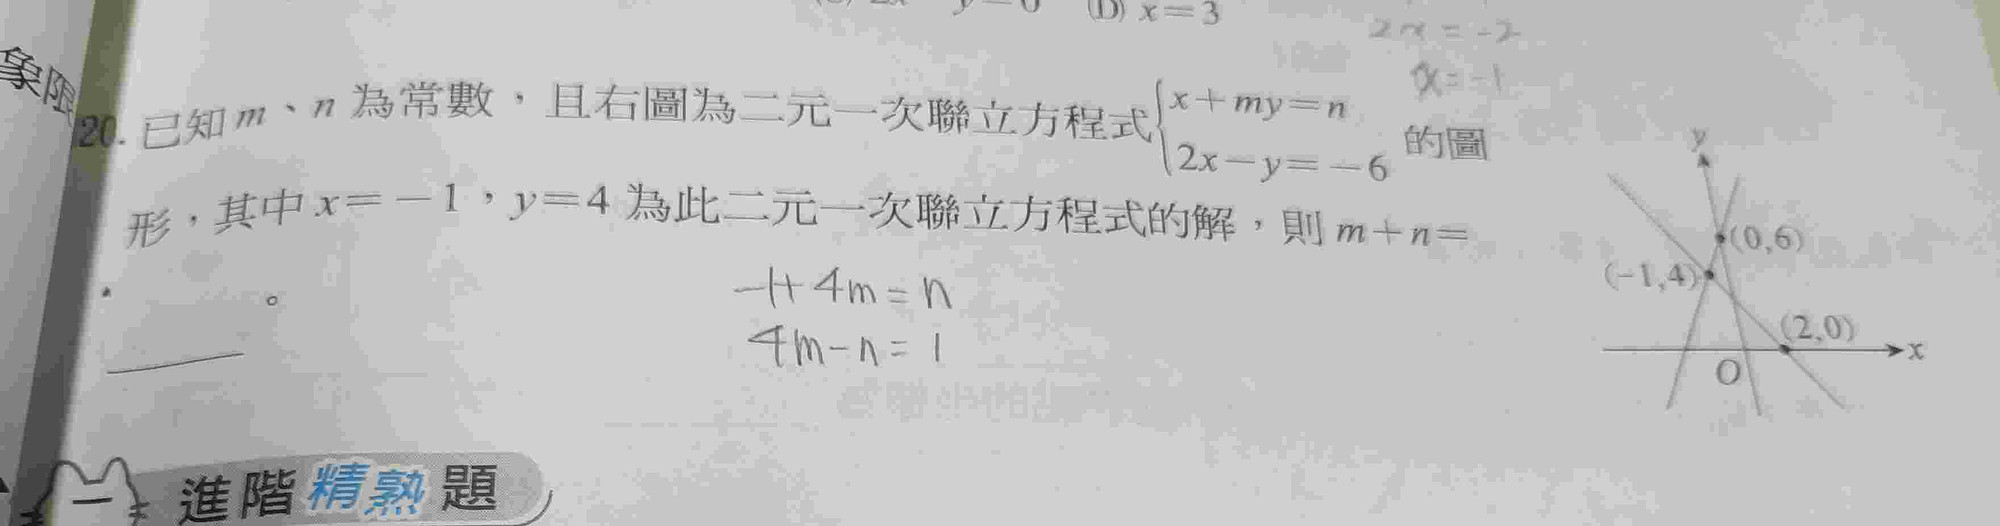 (D) x=3
2x=-2
x=-1
象限
20. 已知 m、n 為常數，且右圖為二元一次聯立方程式{x+my=n
2x-y=-6 的圖
形，其中 x=-1，y=4 為此二元一次聯立方程式的解，則 m+n=
。
-1+4m=n
4m-n=1
y
(0,6)
(-1,4)
(2,0)
x
O
進階精熟題